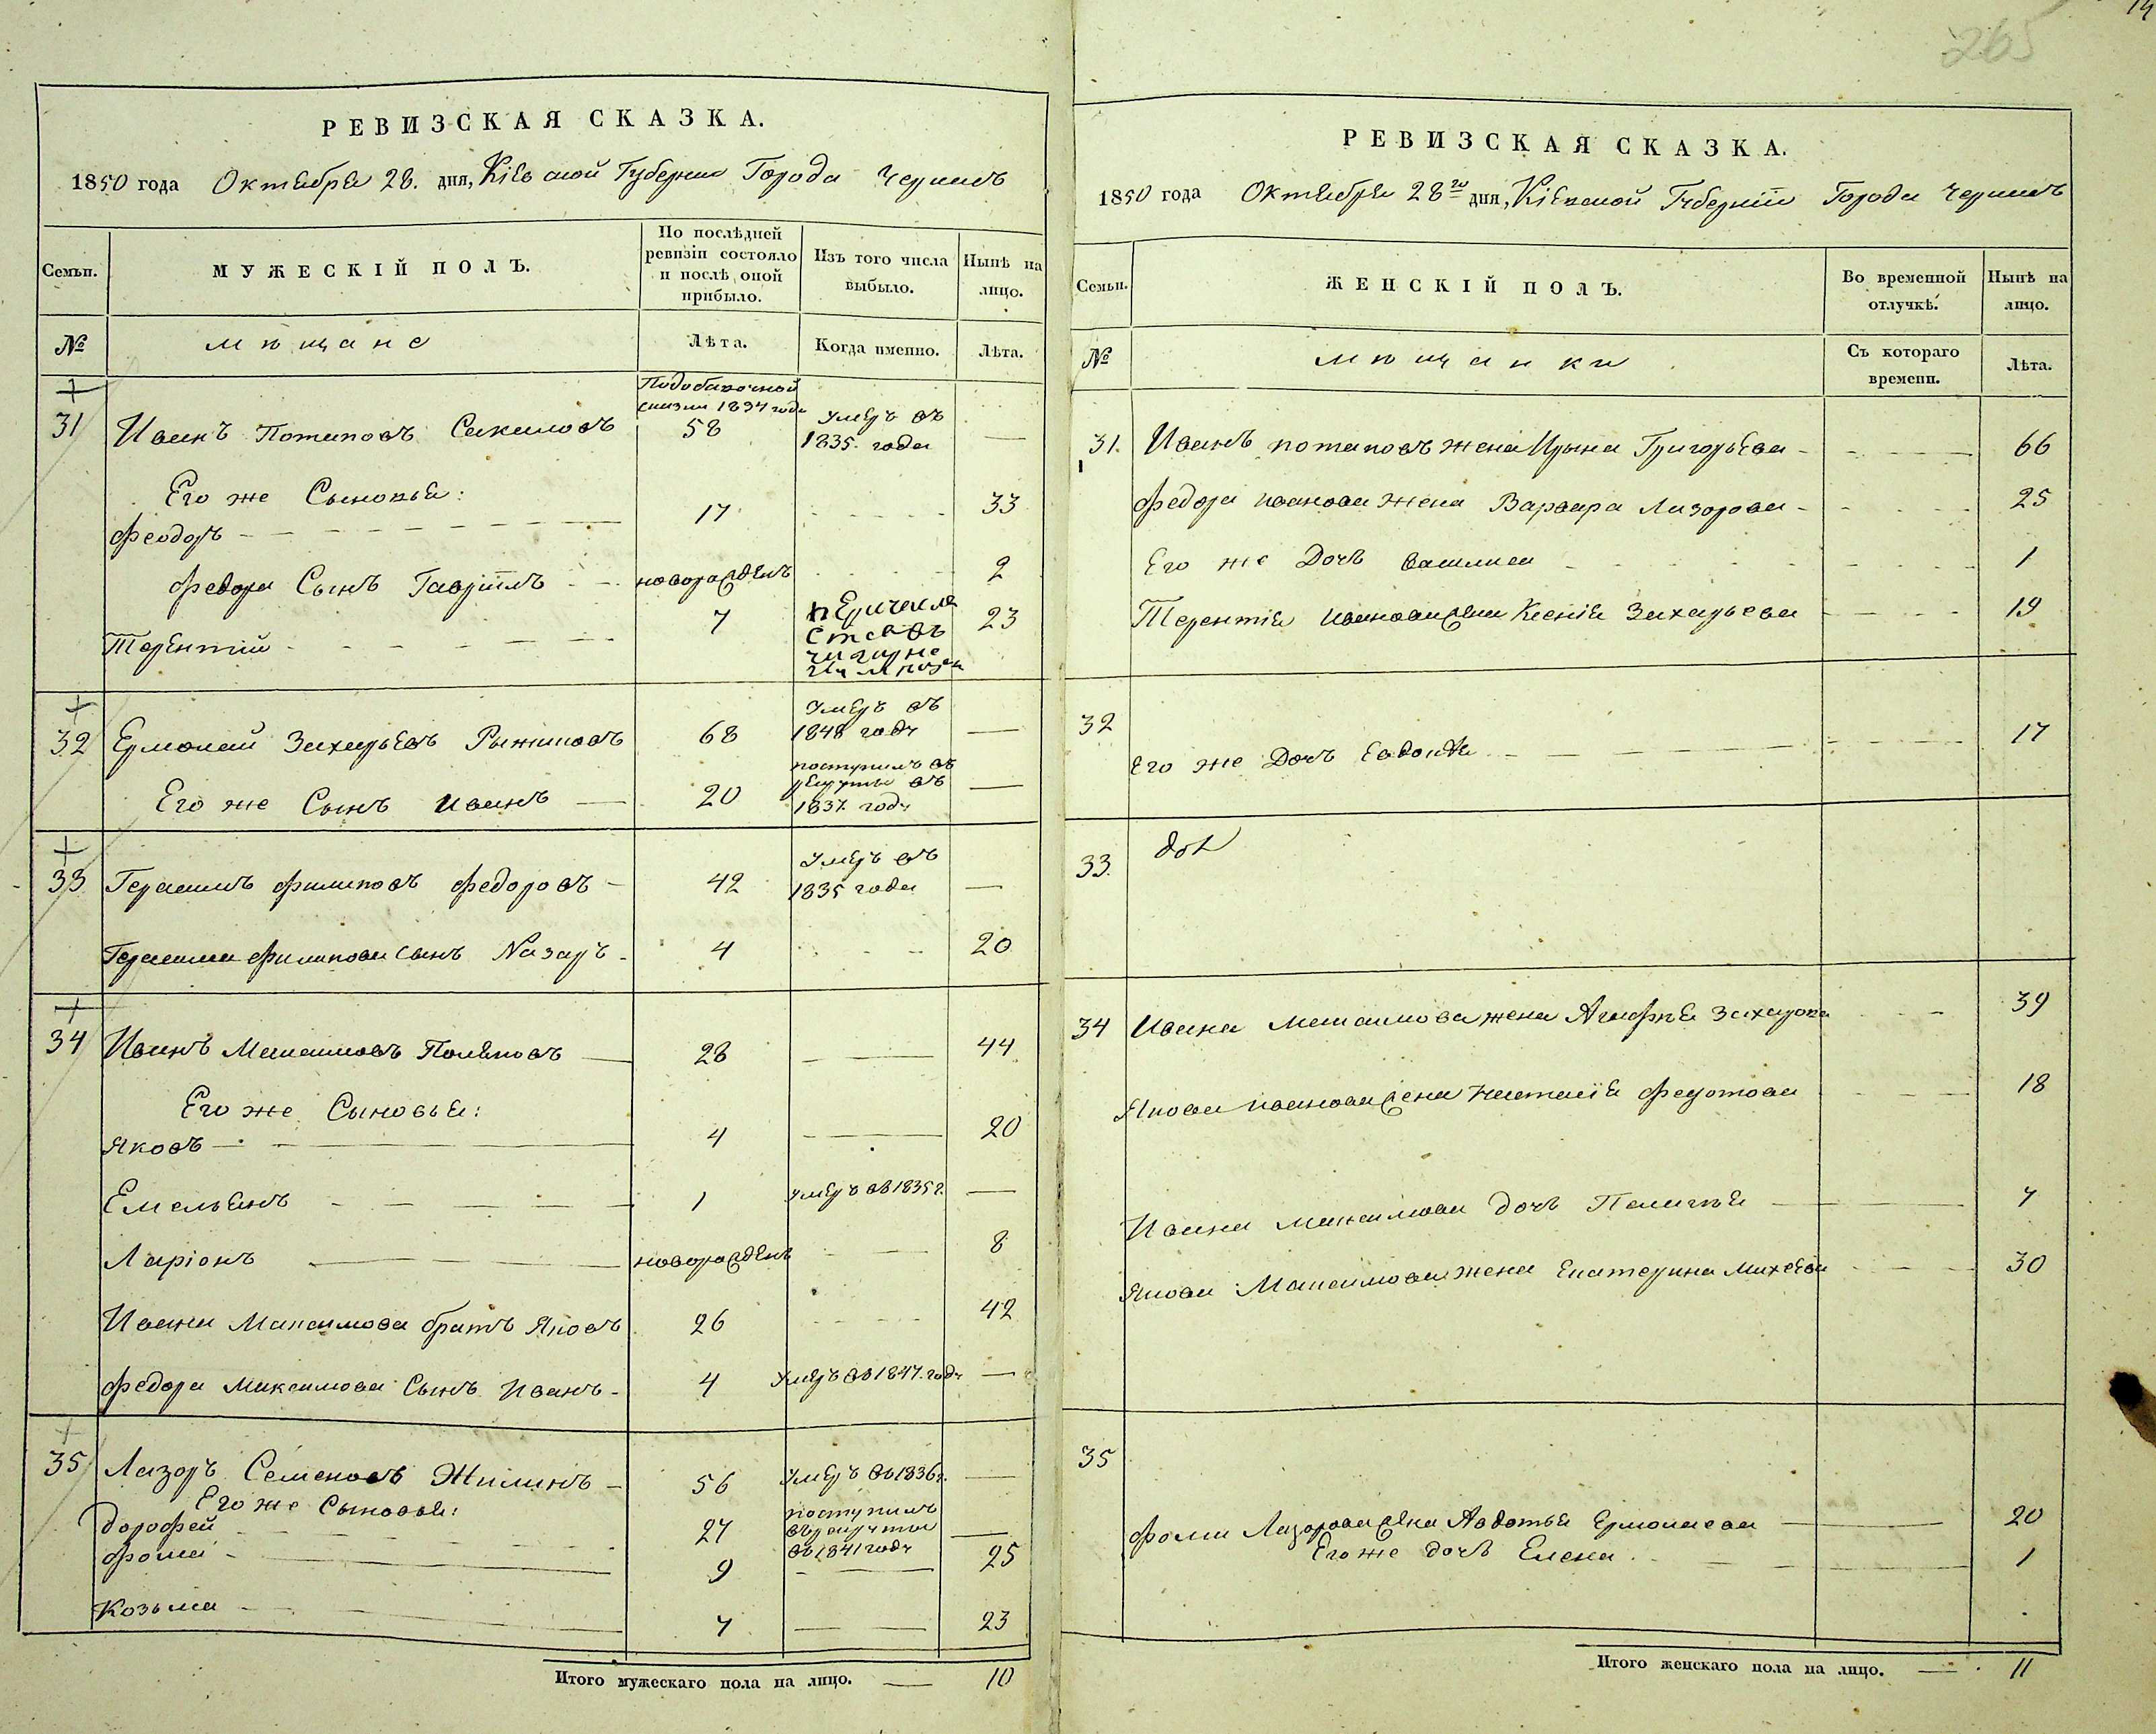 265
РЕВИЗСКАЯ СКАЗКА.
1850 года Октября 28. дня, Кіевской Губерніи Города
Семьи. МУЖЕСКІЙ ПОЛЪ. По послѣдней ревизіи состояло и послѣ оной прибыло. Изъ того числа выбыло. Нынѣ на лицо.
№ мѣщане Лѣта. Когда именно. Лѣта.
сказки 1834 года
31 Иванъ Потаповъ 58 умеръ въ 1835. года —
Его же Сыновья:
Феодоръ 17 33
Федора Сынъ Гавріилъ новорожденъ 2
Терентій 7 23
32 Ермолай Захарьевъ Рыжиковъ 68 Умеръ въ 1848 году —
Его же Сынъ Иванъ — 20 поступилъ въ рекруты въ 1837. году —
33 Герасимъ Филиповъ Федоровъ 42 Умеръ въ 1835 года —
Герасима Филипова сынъ Назаръ 4 20
34 Иванъ Максимовъ Поляковъ 28 — 44
Его же Сыновья:
Яковъ 4 — 20
Емельянъ 1 умеръ въ 1835 г. —
Ларіонъ новорожденъ 8
Ивана Максимова братъ Яковъ 26 42
Федора Максимова Сынъ Иванъ 4 Умеръ въ 1847. году —
35 Лазоръ Семеновъ Жилинъ 56 умеръ въ 1836 г. —
Его же Сыновья:
Дорофей 27 поступилъ въ рекруты въ 1841 году —
Фома 9 — 25
Козьма 7 — 23
Итого мужескаго пола на лицо. — 10
РЕВИЗСКАЯ СКАЗКА.
1850 года Октября 28го дня, Кіевской Губерніи Города
Семьи. ЖЕНСКІЙ ПОЛЪ. Во временной отлучкѣ. Нынѣ на лицо.
№ мѣщанки Съ котораго времени. Лѣта.
31. Иванъ потаповъ жена Ирына Григорьева 66
Федора иванова жена Варвара Лазорова 25
Его же Дочъ василиса 1
Терентія иванова жена Ксенія Захарьева 19
32 Его же Дочъ 17
33.
34 Ивана Максимова жена Агафья Захарова 39
Якова иванова жена Настасія Федотова 18
Ивана Максимова дочъ Пелагея 7
Якова Максимова жена Екатерина Михеева 30
35 Фомы Лазорова жена Авдотья Ермолаева 20
Его же дочъ Елена 1
Итого женскаго пола на лицо. — 11